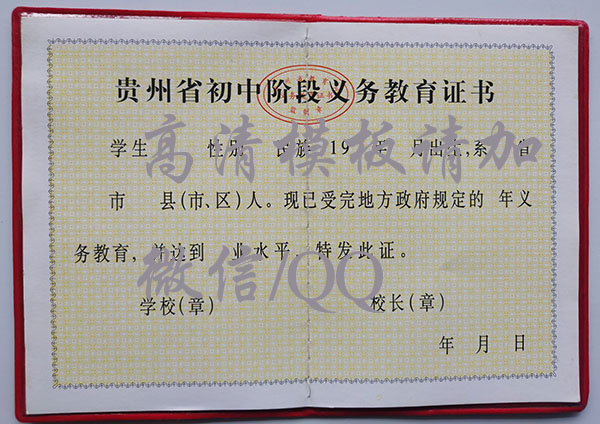 贵州省初中阶段义务教育证书
学生 性别 民族 19 年 月出生,系 省
市 县(市、区)人。现已受完地方政府规定的 年义
务教育,并达到 业水平,特发此证。
学校(章) 校长(章)
年 月 日
高清模板请加
微信/QQ